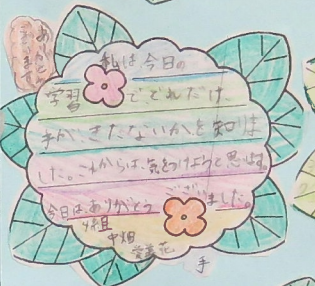 ありがとう
ございます
私は今日の
学習でどれだけ、
手が、きたないかを知りま
した。これからは、気をつけようと思います。
今日はありがとうございました。
4組
中畑
愛美花
手